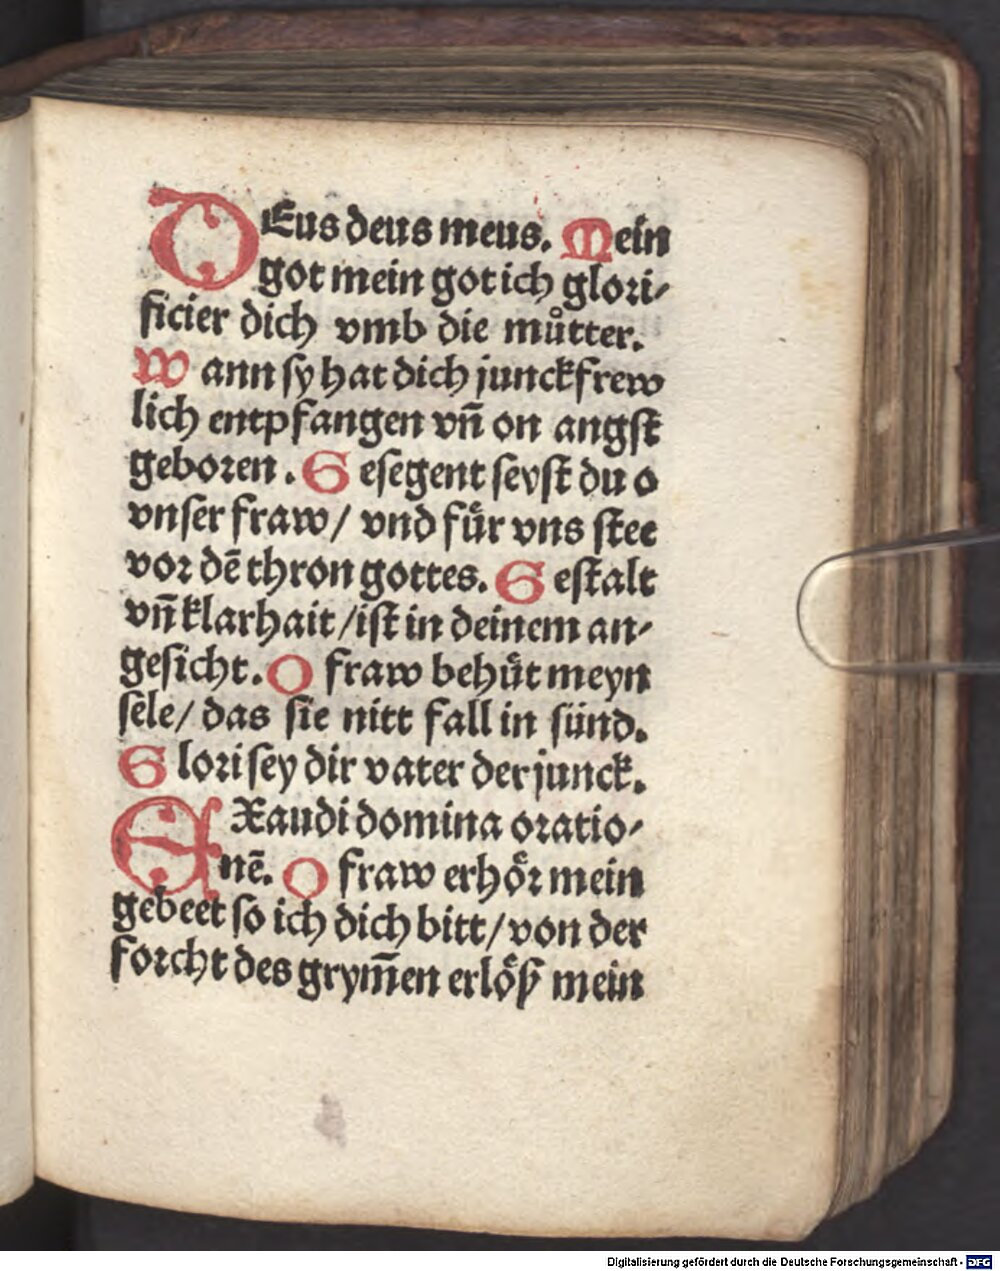 DEus deus meus. Mein
got mein got ich glori⸗
ficier dich vmb die muͦtter.
Wann sy hat dich junckfrew
lich entpfangen vn̄ on angst
geboren. Gesegent seyst du o
vnser fraw/ vnd fuͤr vns stee
vor dē thron gottes. Gestalt
vn̄ klarhait/ist in deinem an⸗
gesicht. O fraw behuͤt meyn
sele/ das sie nitt fall in suͤnd.
Glori sey dir vater der junck.
EXaudi domina oratio⸗
nē. O fraw erhoͤr mein
gebeet so ich dich bitt/von der
forcht des grym̄en erloͤß mein
Digitalisierung gefördert durch die Deutsche Forschungsgemeinschaft - DFG